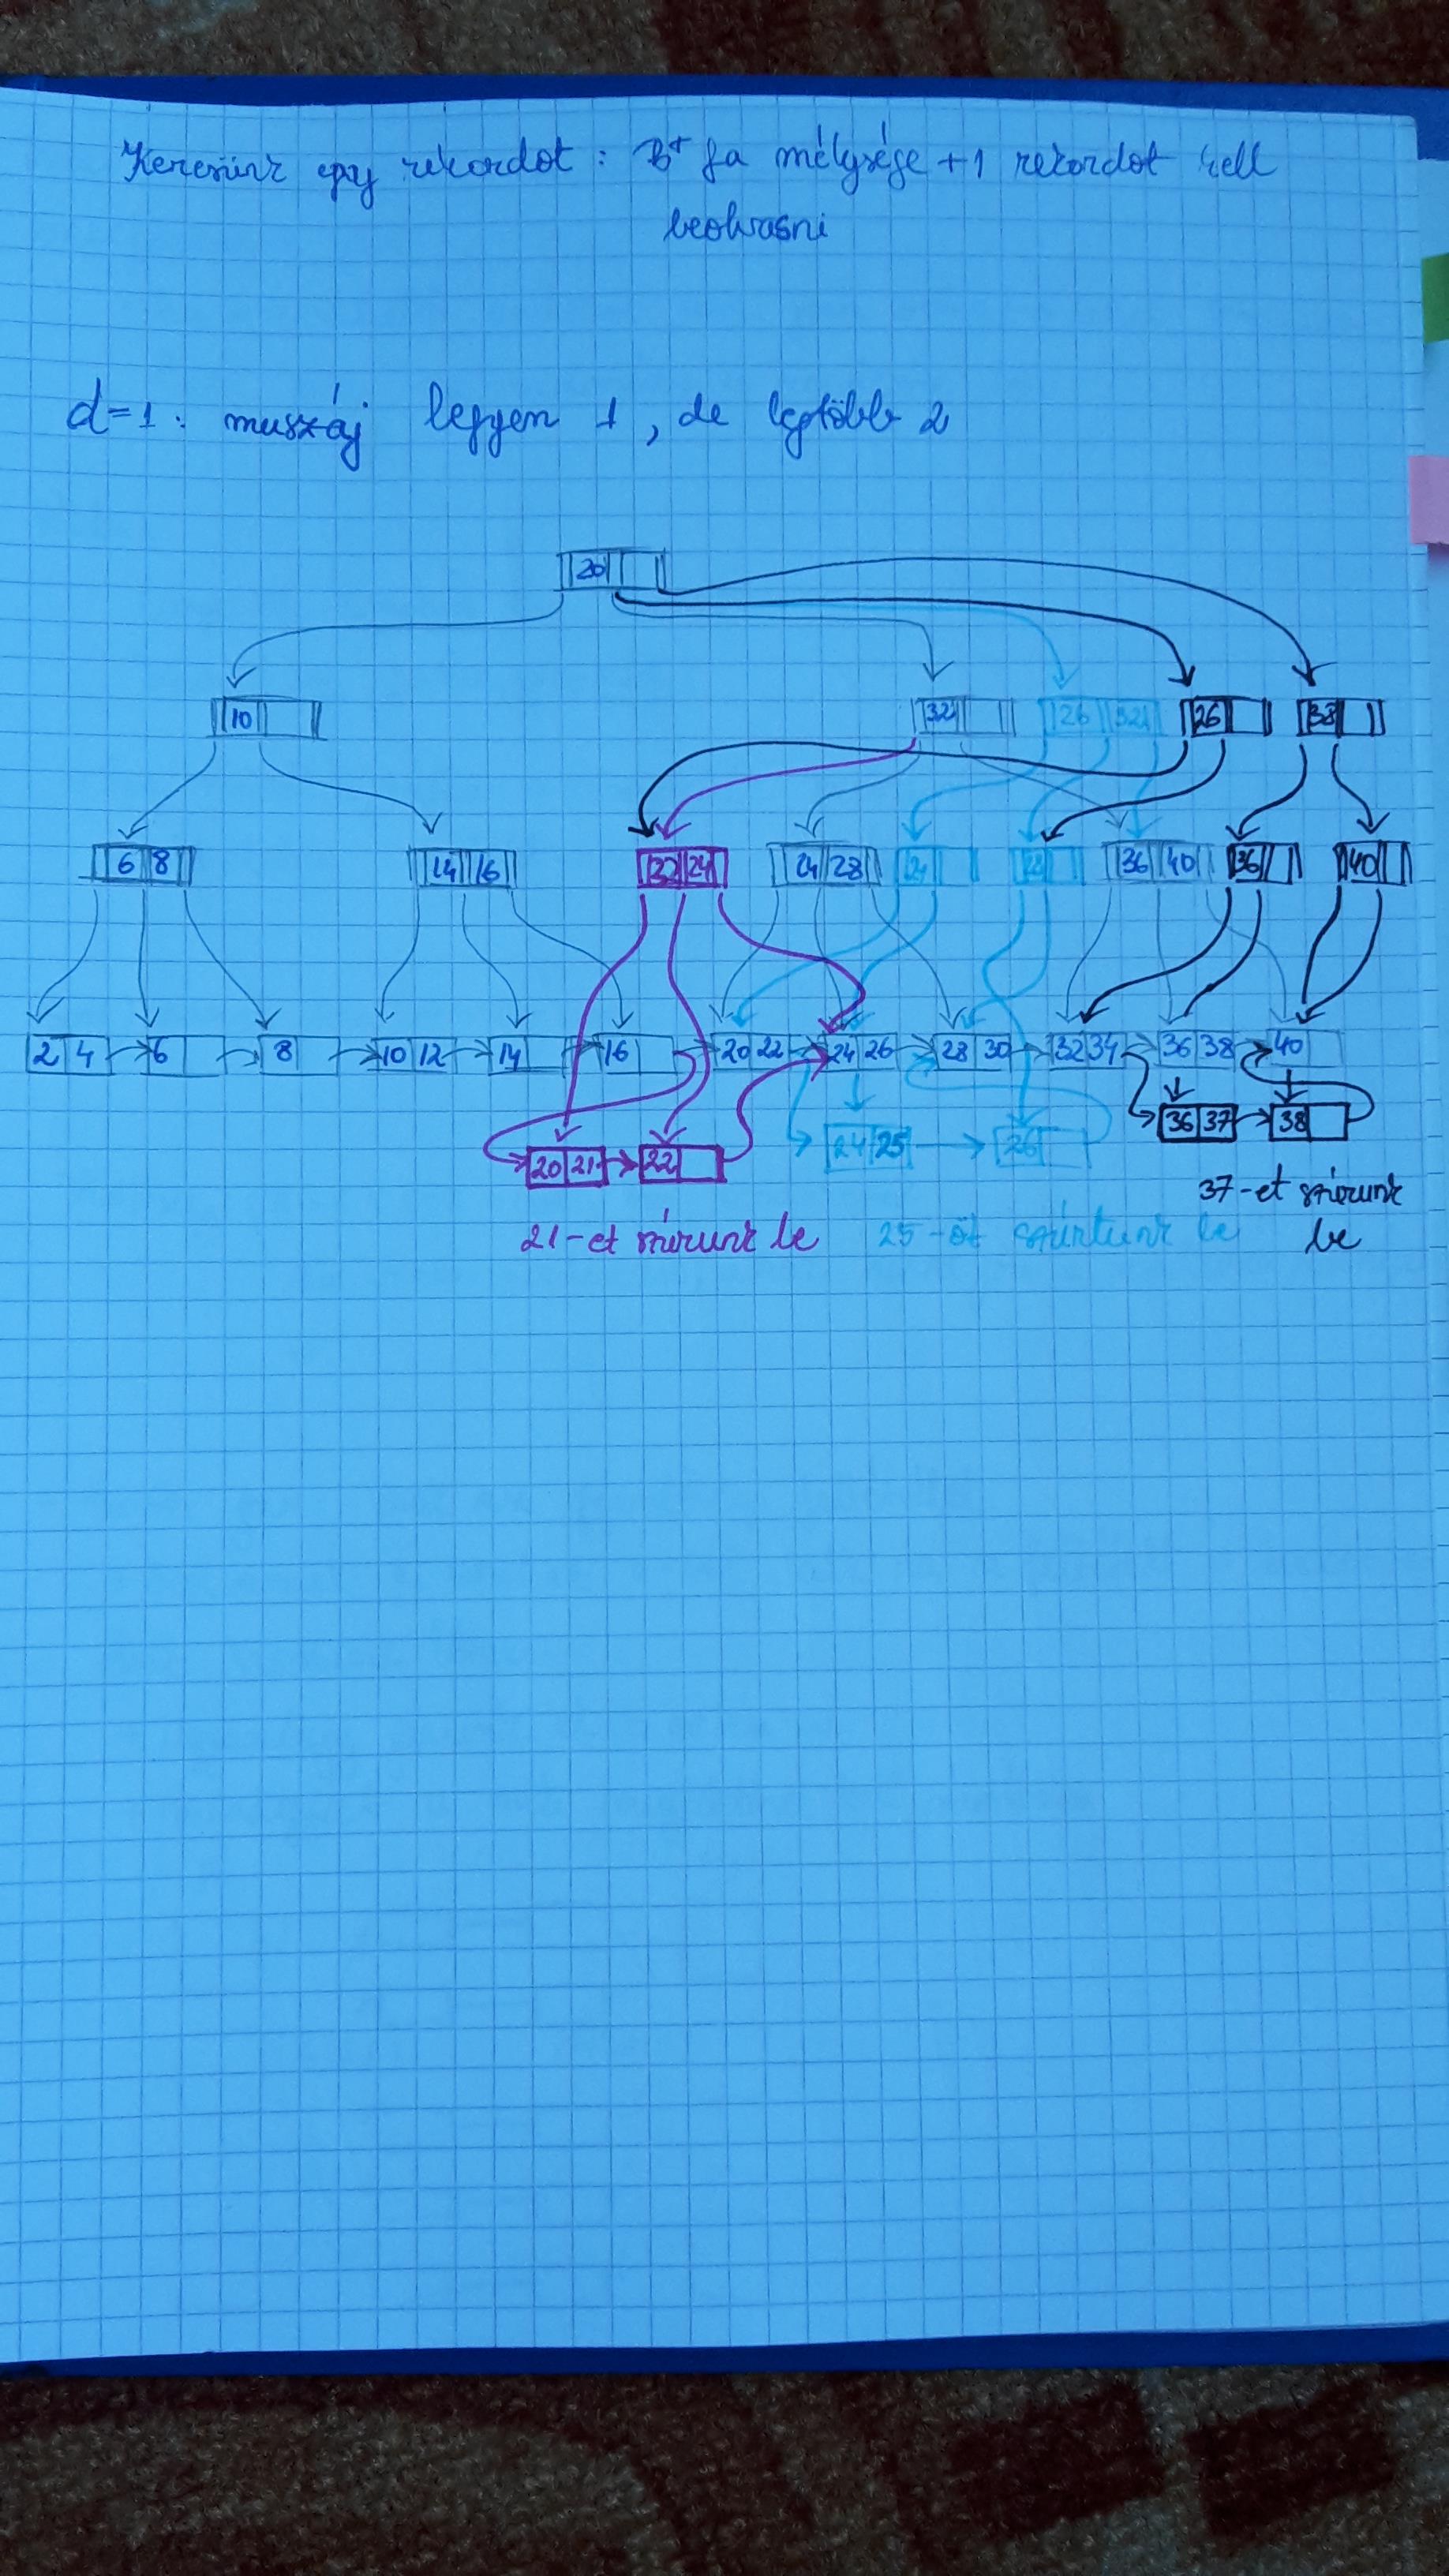 Keresünk egy rekordot : B+ fa mélysége +1 rekordot kell
beolvasni
d=1 : muszáj legyen 1 , de legtöbb 2
20
10 32 26 32 26 38
6 8 14 16 22 24 24 28 24 36 40 36 40
2 4 6 8 10 12 14 16 20 22 24 26 28 30 32 34 36 38 40
36 37 38
20 21 22 24 25 26
37-et szúrunk
21-et szúrunk be 25-öt szúrtunk be be